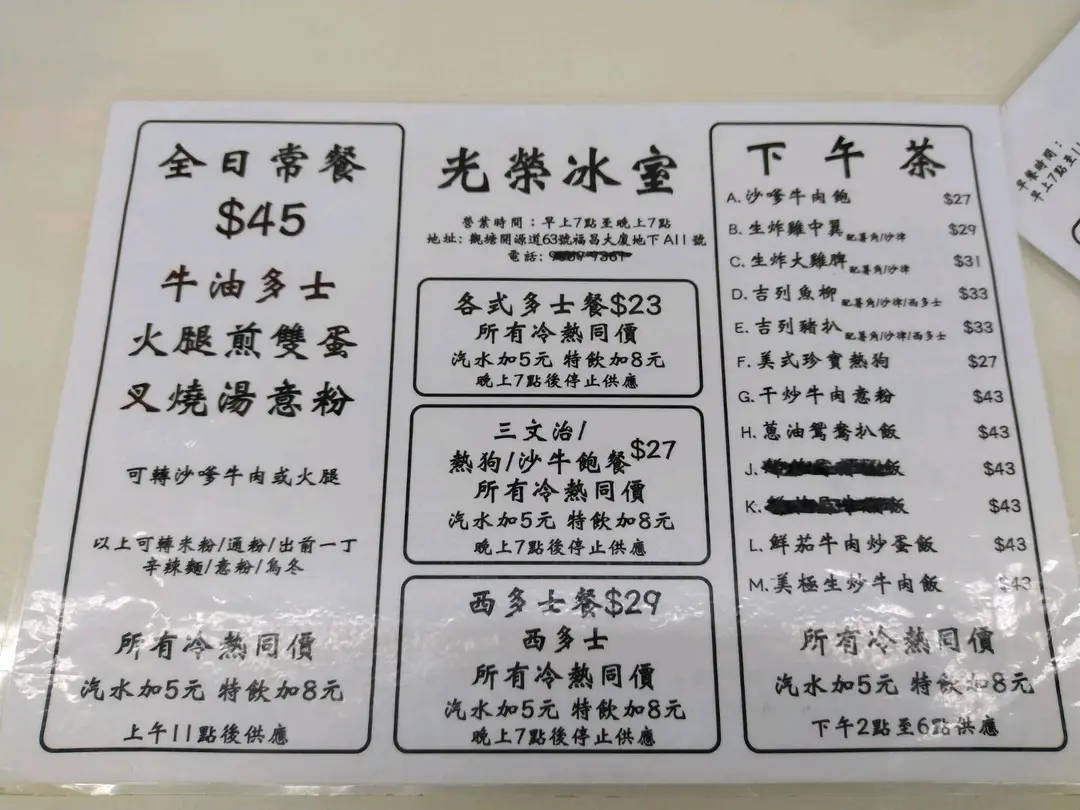 全日常餐
$45
牛油多士
火腿煎雙蛋
叉燒湯意粉
可轉沙嗲牛肉或火腿
以上可轉米粉/通粉/出前一丁
辛辣麵/意粉/烏冬
所有冷熱同價
汽水加5元 特飲加8元
上午11點後供應
光榮冰室
營業時間：早上7點至晚上7點
地址: 觀塘開源道63號福昌大廈地下A11號
電話:
各式多士餐$23
所有冷熱同價
汽水加5元 特飲加8元
晚上7點後停止供應
三文治/
熱狗/沙牛飽餐$27
所有冷熱同價
汽水加5元 特飲加8元
晚上7點後停止供應
西多士餐$29
西多士
所有冷熱同價
汽水加5元 特飲加8元
晚上7點後停止供應
下午茶
A. 沙嗲牛肉飽 $27
B. 生炸雞中翼 配薯角/沙律 $29
C. 生炸大雞脾 配薯角/沙律 $31
D. 吉列魚柳 配薯角/沙律/西多士 $33
E. 吉列豬扒 配薯角/沙律/西多士 $33
F. 美式珍寶熱狗 $27
G. 干炒牛肉意粉 $43
H. 蔥油鴛鴦扒飯 $43
J. 飯 $43
K. 飯 $43
L. 鮮茄牛肉炒蛋飯 $43
M. 美極生炒牛肉飯 $43
所有冷熱同價
汽水加5元 特飲加8元
下午2點至6點供應
早餐時間：
早上7點至11